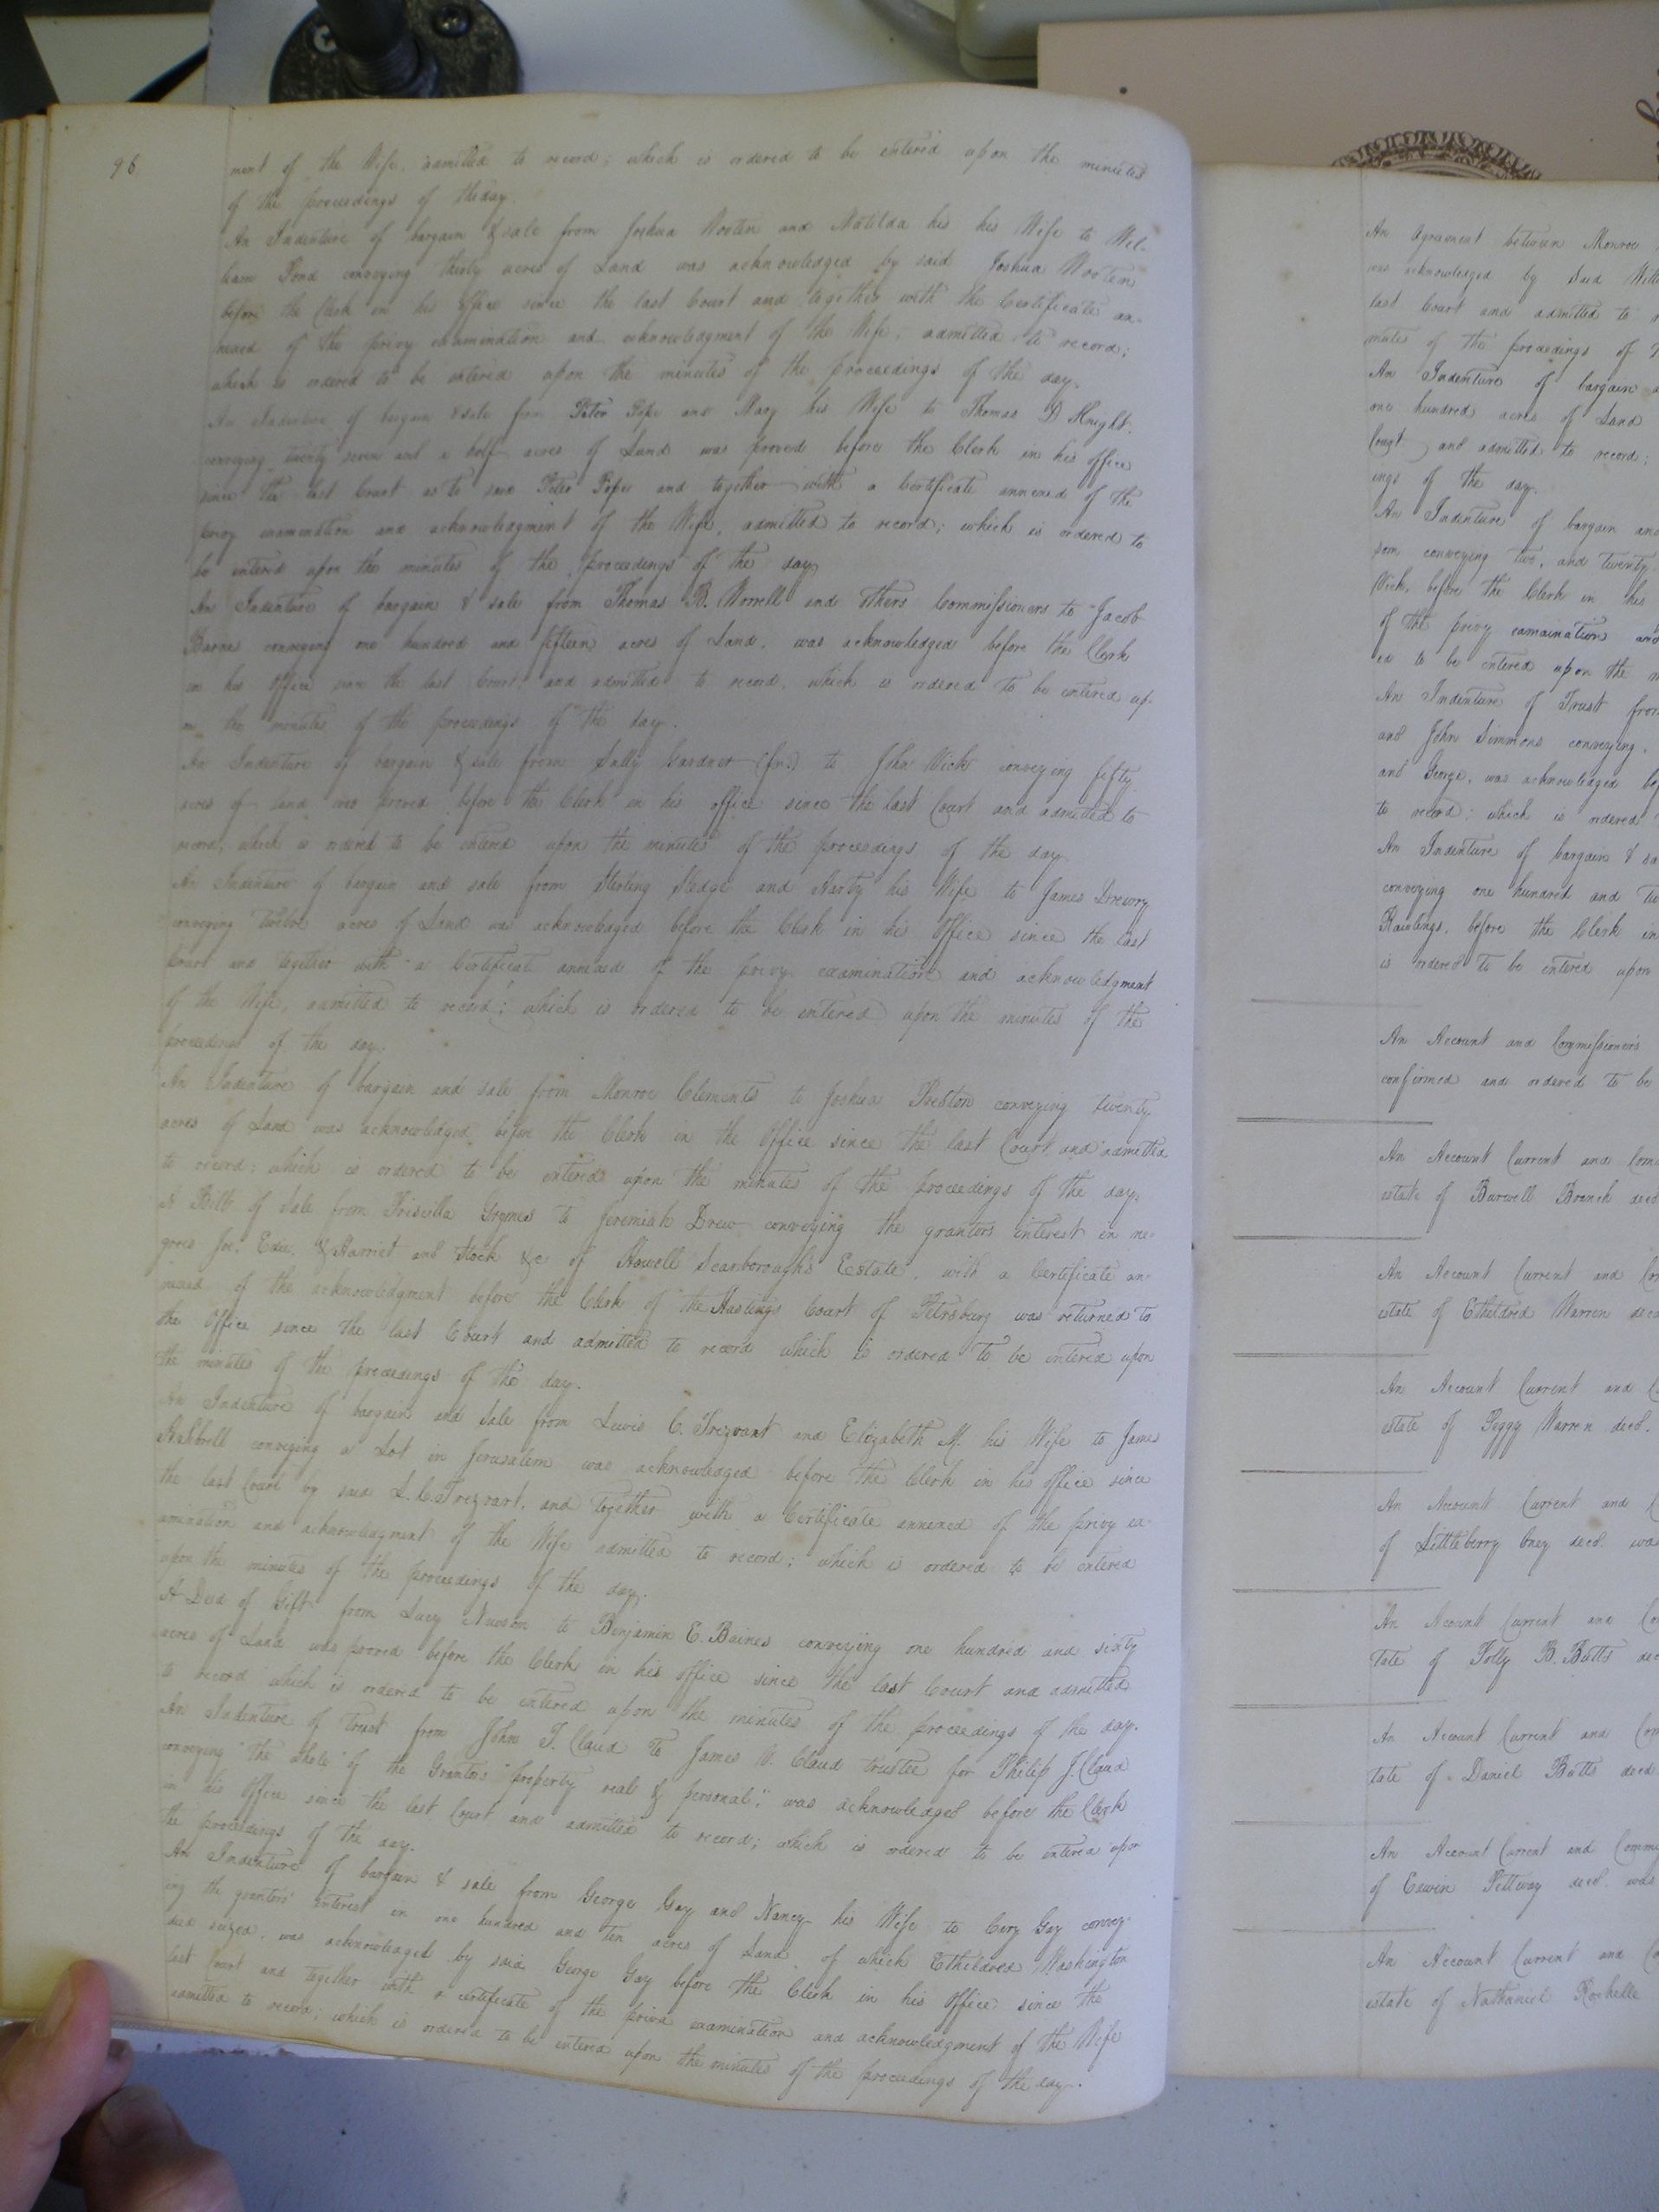 96
ment of the Wife, admitted to record; which is ordered to be entered upon the minutes
of the proceedings of the day.
An Indenture of bargain & sale from Joshua Wooten and Matilda his his Wife to Wil-
liam Pond conveying thirty acres of Land was acknowledged by said Joshua Wooten
before the Clerk in his office since the last Court and together with the Certificate an-
nexed of the privy examination and acknowledgment of the Wife, admitted to record;
which is ordered to be entered upon the minutes of the proceedings of the day.
An Indenture of bargain & sale from Peter Pope and Mary his Wife to Thomas D Knight
conveying twenty seven and a half acres of Land was proved before the Clerk in his office
since the last Court as to said Peter Pope and together with a Certificate annexed of the
privy examination and acknowledgment of the Wife, admitted to record; which is ordered to
be entered upon the minutes of the proceedings of the day
An Indenture of bargain & sale from Thomas B. Worrell and others Commissioners to Jacob
Barnes conveying one hundred and fifteen acres of Land, was acknowledged before the Clerk
in his Office since the last Court, and admitted to record, which is ordered to be entered up-
on the minutes of the proceedings of the day.
An Indenture of bargain & sale from Sally Gardner (Jnr.) to John Vick conveying fifty
acres of land was proved before the Clerk in his office since the last Court and admitted to
record; which is ordered to be entered upon the minutes of the proceedings of the day
An Indenture of bargain and sale from Sterling Sledge and Harty his Wife to James Drewry
conveying twelve acres of Land was acknowledged before the Clerk in his Office since the last
Court and together with a Certificate annexed of the privy examination and acknowledgment
of the Wife, admitted to record; which is ordered to be entered upon the minutes of the
proceedings of the day.
An Indenture of bargain and sale from Monroe Clements to Joshua Pretlow conveying twenty
acres of Land was acknowledged before the Clerk in the Office since the last Court, and admitted
to record; which is ordered to be entered upon the minutes of the proceedings of the day.
A Bill of Sale from Priscilla Grymes to Jeremiah Drew conveying the grantors interest in ne-
groes Joe, & Harriet and Stock &c of Howell Scarboroughs Estate, with a Certificate an-
nexed of the acknowledgment before the Clerk of the Hustings Court of Petersburg was returned to
the Office since the last Court and admitted to record which is ordered to be entered upon
the minutes of the proceedings of the day.
An Indenture of bargain and sale from Lewis C. Trezvant and Elizabeth M. his Wife to James
conveying a Lot in Jerusalem was acknowledged before the Clerk in his office since
the last Court by said L. C. Trezvant, and together with a Certificate annexed of the privy ex-
amination and acknowledgment of the Wife admitted to record; which is ordered to be entered
upon the minutes of the proceedings of the day.
A Deed of Gift from Lucy Newsom to Benjamin E. Baines conveying one hundred and sixty
acres of Land was proved before the Clerk in his office since the last Court and admitted
to record which is ordered to be entered upon the minutes of the proceedings of the day.
An Indenture of Trust from John T. Claud to James W. Claud trustee for Philip J. Claud
conveying "the whole of the Grantors property real & personal," was acknowledged before the Clerk
in his Office since the last Court and admitted to record; which is ordered to be entered upon
the proceedings of the day.
An Indenture of bargain & sale from George Gay and Nancy his Wife to Cery Gay convey-
ing the grantors' interest in one hundred and ten acres of Land, of which Etheldred Washington
died seized, was acknowledged by said George Gay before the Clerk in his Office since the
last Court and together with a certificate of the priva examination and acknowledgment of the Wife
admitted to record; which is ordered to be entered upon the minutes of the proceedings of the day.
An Agreement between Monroe
was acknowledged by said
last Court and admitted to
nutes of the proceedings of
An Indenture of bargain
one hundred acres of Land
Court and admitted to record;
ings of the day.
An Indenture of bargain and
som conveying two, and twenty
Vick, before the Clerk in his
of the privy eamaination and
ed to be entered upon the
An Indenture of Trust from
and John Simmons conveying,
and George, was acknowledged
to record; which is ordered
An Indenture of bargain &
conveying one hundred and
Rawlings, before the Clerk in
is ordered to be entered upon
An Account and Commissioners
confirmed and ordered to be
An Account Current and
estate of Burwell Branch decd
An Account Current and
estate of Etheldred Warren
An Account Current and
estate of Peggy Warren decd.
An Account Current and
of Littleberry Oney decd. was
An Account Current and
tate of Polly B. Butts
An Account Current and
tate of Daniel Butts decd.
An Account Current and
of Edwin Pettway decd. was
An Account Current and
estate of Nathaniel Rochelle